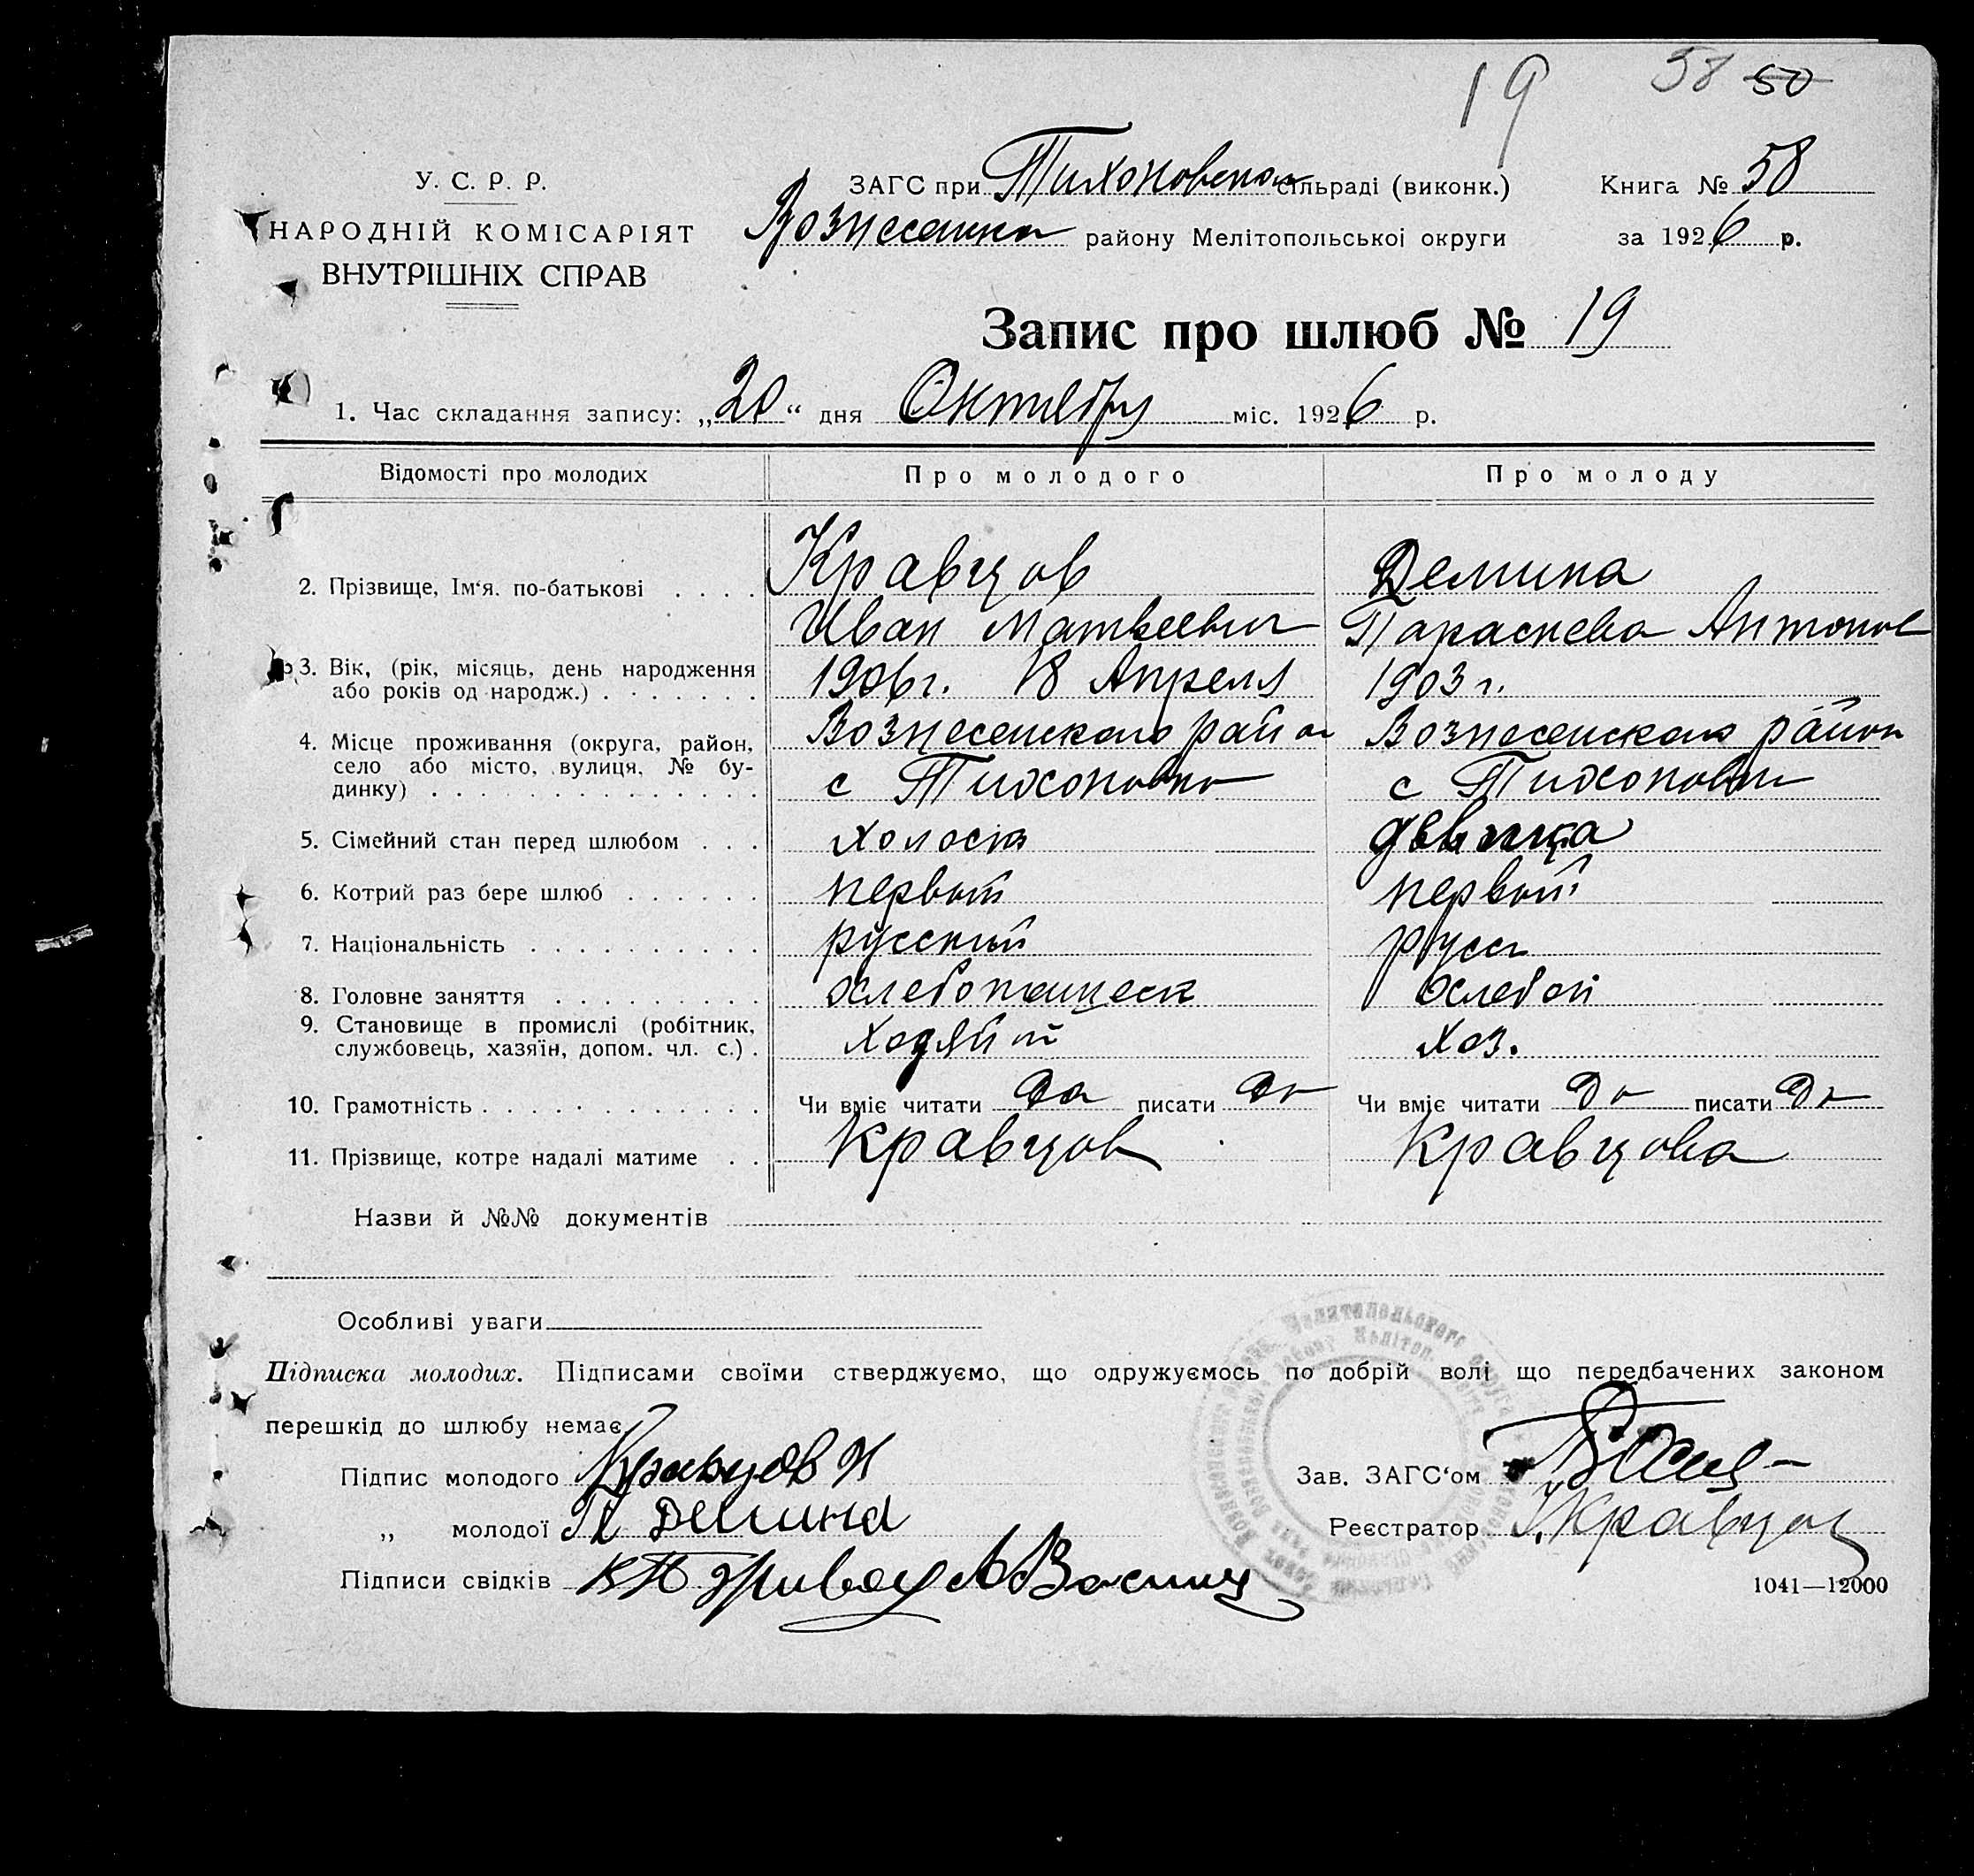 19 58 50
У. С. Р. Р.
НАРОДНІЙ КОМІСАРІЯТ
ВНУТРІШНІХ СПРАВ
ЗАГС при Тихоновском сільраді (виконк.)
Книга № 58
району Мелітопольської округи
за 1926 р.
Запис про шлюб № 19
1. Час складання запису: „20“ дня Октебру міс. 1926 р.
Відомості про молодих Про молодого Про молоду
2. Прізвище, Ім‘я. по-батькові . . . . Кравцов Демина
Иван Матвеевич Параскева Антонов
3. Вік, (рік, місяць, день народження
або років од народж.) . . . . . . . 1906 г. 18 Апреля 1903 г.
4. Місце проживання (округа, район,
село або місто, вулиця, № бу-
динку) . . . . . . . . . . . . . .
Вознесенского район Вознесенского район
с Тихоновка с Тихоновки
5. Сімейний стан перед шлюбом . . . холост девица
6. Котрий раз бере шлюб . . . . . . первый первый
7. Національність . . . . . . . . . . русский русс
8. Головне заняття . . . . . . . . .
9. Становище в промислі (робітник,
службовець, хазяїн, допом. чл. с.) . хозяин хоз.
10. Грамотність . . . . . . . . . . . . Чи вміє читати да писати да Чи вміє читати да писати да
11. Прізвище, котре надалі матиме . . Кравцов Кравцова
Назви й №№ документів
Особливі уваги
Підписка молодих. Підписами своїми стверджуємо, що одружуємось по добрій волі що передбачених законом
перешкід до шлюбу немає.
Підпис молодого Кравцов И
„ молодої П Демина
Підписи свідків
Зав. ЗАГС‘ом
Реєстратор Кравцов
1041—12000